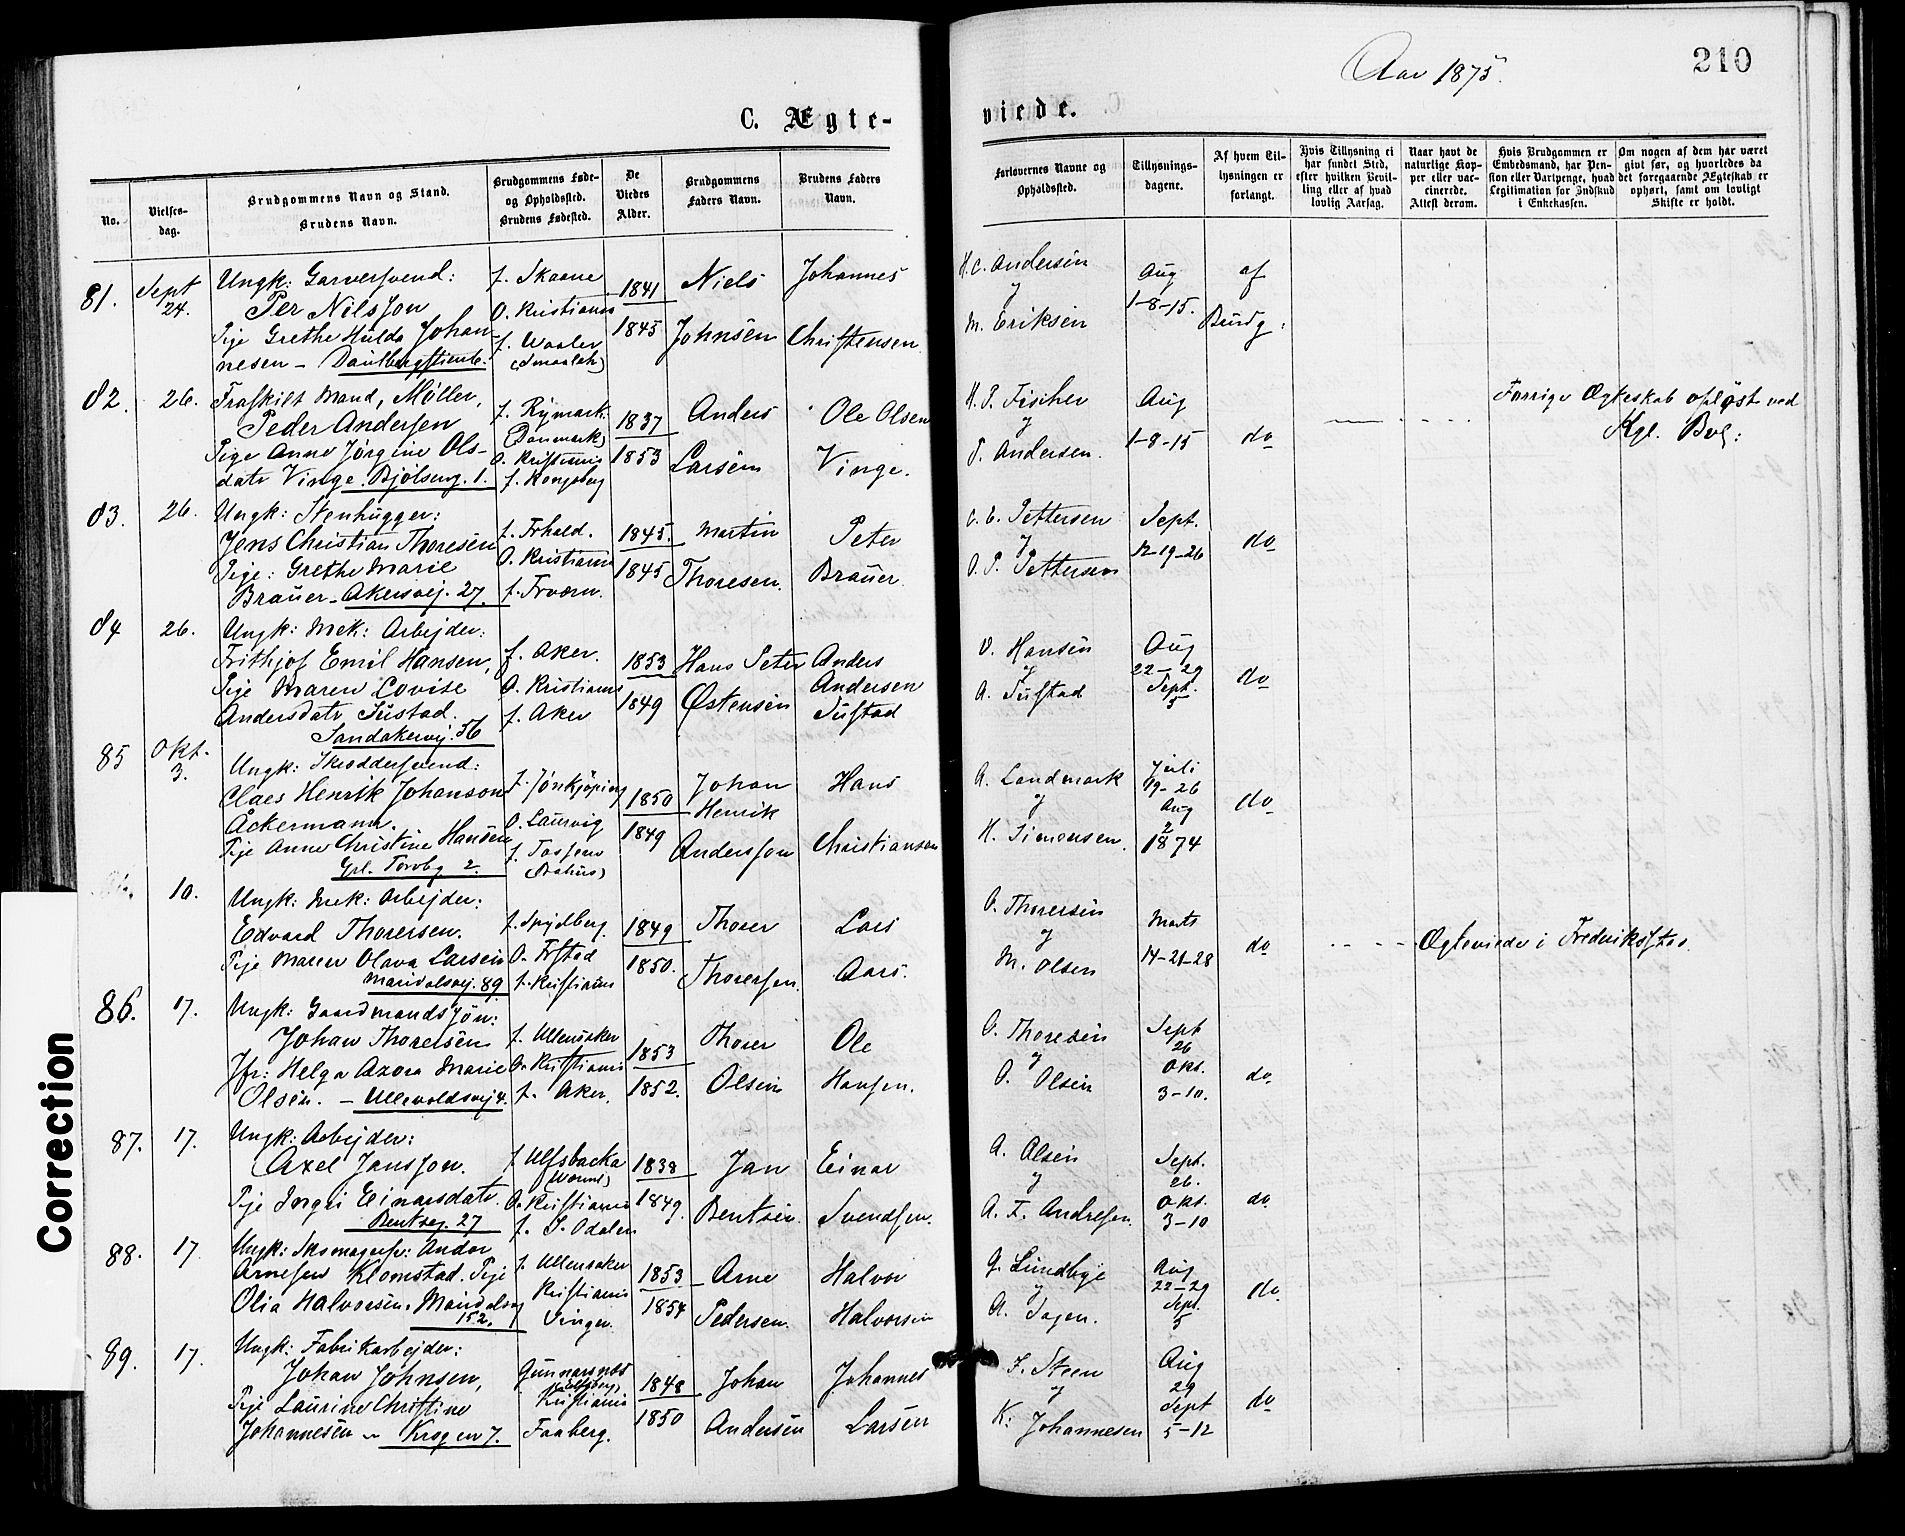 Aar 1875.
210
C. Ægte-
viede.
No.
Vielses-
dag.
Brudgommens Navn og Stand.
Brudens Navn.
Brudgommens Føde-
og Opholdssted.
Brudens Fødested.
De
Viedes
Alder.
Brudgommens
Faders Navn.
Brudens Faders
Navn.
Forlovernes Navne og
Opholdssted.
Tillysnings-
dagene.
Af hvem Til-
lysningen er
forlangt.
Hvis Tillysning ei
har fundet Sted,
efter hvilken Bevil-
ling eller af hvad
lovlig Aarsag.
Naar havt de
naturlige Kop-
per eller vac-
cinerede.
Attest derom.
Hvis Brudgommen er
Embedsmand, har Pen-
sion eller Vartpenge, hvad
Legitimation for Indskud
i Enkekassen.
Om nogen af dem har været
givt før, og hvorledes da
det foregaaende Ægteskab er
ophørt, samt om lovligt
Skifte er holdt.
81. Sept 24.
Ungk: Garversvend:
Per Nilsson
Pige Grethe Hulda Johan-
nesen -
f. Skaane
O. Kristiania
f. Vaaler
(Smaalen)
1841
1845
Niels
Johnsen
Johannes
Christensen
H. C. Andersen
og
M. Eriksen
Aug
1-8-15.
af
Brudg:
82. 26.
Fraskilt Mand, Møller,
Peder Andersen
Pige Anne Jørgine Ols-
datr Vinge. Bjølseng. 1.
f. Rymark
(Danmark)
O. Kristiania
f. Kongsberg
1837
1853
Anders
Larsen
Ole Olsen
Vinge.
H. P. Fischer
og
P. Andersen.
Aug
1-8-15
do
Forrige Ægteskab opløst ved
Kgl. Bev:
83. 26.
Ungk: Stenhugger:
Jens Christian Thoresen
Pige: Grethe Marie
Brauer - Akersvej. 27.
f. Frhald.
O. Kristiania
f. Frværn.
1845.
1845
Martin
Thoresen.
Peter
Brauer.
C. E. Pettersen
og
O. P. Pettersen
Sept.
12-19-26
do
84 26.
Ungk: Mek: Arbejder:
Frithjof Emil Hansen,
Pige Maren Lovise
Andersdatr Sustad.
Sandakervej. 56
f. Aker.
O. Kristiania
f. Aker
1853
1849
Hans Peter
Østensen
Anders
Andersen
Sustad
O. Hansen
og
A. Sustad
Aug
22-29
Sept.
5
do
85 Okt. 3.
Ungk: Skræddersvend:
Claes Henrik Johanson
Åckermann.
Pige Anne Christine Hansen
Grl. Torvbg 2.
f. Jønkjøping
O. Laurvig
f. Tossene
(Bahus)
1850
1849
Johan
Henrik
Andersson
Hans
Christianson
A. Landmark
og
H. Simensen.
Juli
19-26
Aug
2
1874
do
10.
Ungk: Mek: Arbejder:
Edvard Thorersen.
Pige Maren Olava Larsen
Maridalsvej. 89
f. Spydberg
O. Frstad
f. Kristiania
1849
1850.
Thorer
Thorersen.
Lars
Aars.
O. Thorersen
og
M. Olsen
Marts
14-21-28
do
Ægteviede i Frederiksstad.
86. 17.
Ungk: Gaardmandssøn:
Johan Thorersen
Jfr: Helga Azora Marie
Olsen. - Ullevoldsvej 4.
f. Ullensaker
O. Kristiania
f. Aker.
1853
1852.
Thorer
Olsen
Ole
Hansen.
O. Thoresen
og
O. Olsen
Sept
26
Okt.
3-10.
do
87. 17.
Ungk: Arbejder:
Axel Jansson.
Pige Ingri Einarsdatr.
Bentseg. 27
f. Ulfsbacka
(Werml)
O. Kristiania
f. S. Odalen
1838
1849.
Jan
Bentsen.
Einar
Svendsen.
A. Olsen
og
A. F. Andresen.
Sept.
26.
Okt.
3-10
do
88. 17.
Ungk: Skomagersv: Andor
Arnesen Klomstad. Pige
Olia Halvorsen. Maridalsvej
152.
f. Ullensaker
Kristiania
Vinger.
1853
1854
Arne
Pedersen.
Halvor
Halvorsen
G. Lundbye
og
A. Sagen.
Aug
22-29
Sept.
5
do
89. 17.
Ungk: Fabrikarbejder:
Johan Johnsen,
Pige Laurine Christine
Johannesen - Krogen 7.
Gunnarsnæs
Kristiania
Faaberg.
1848
1850
Johan
Andersen
Johannes
Larsen
J. Steen
og
K. Johannesen
Aug
29
Sept
5-12
do
Correction